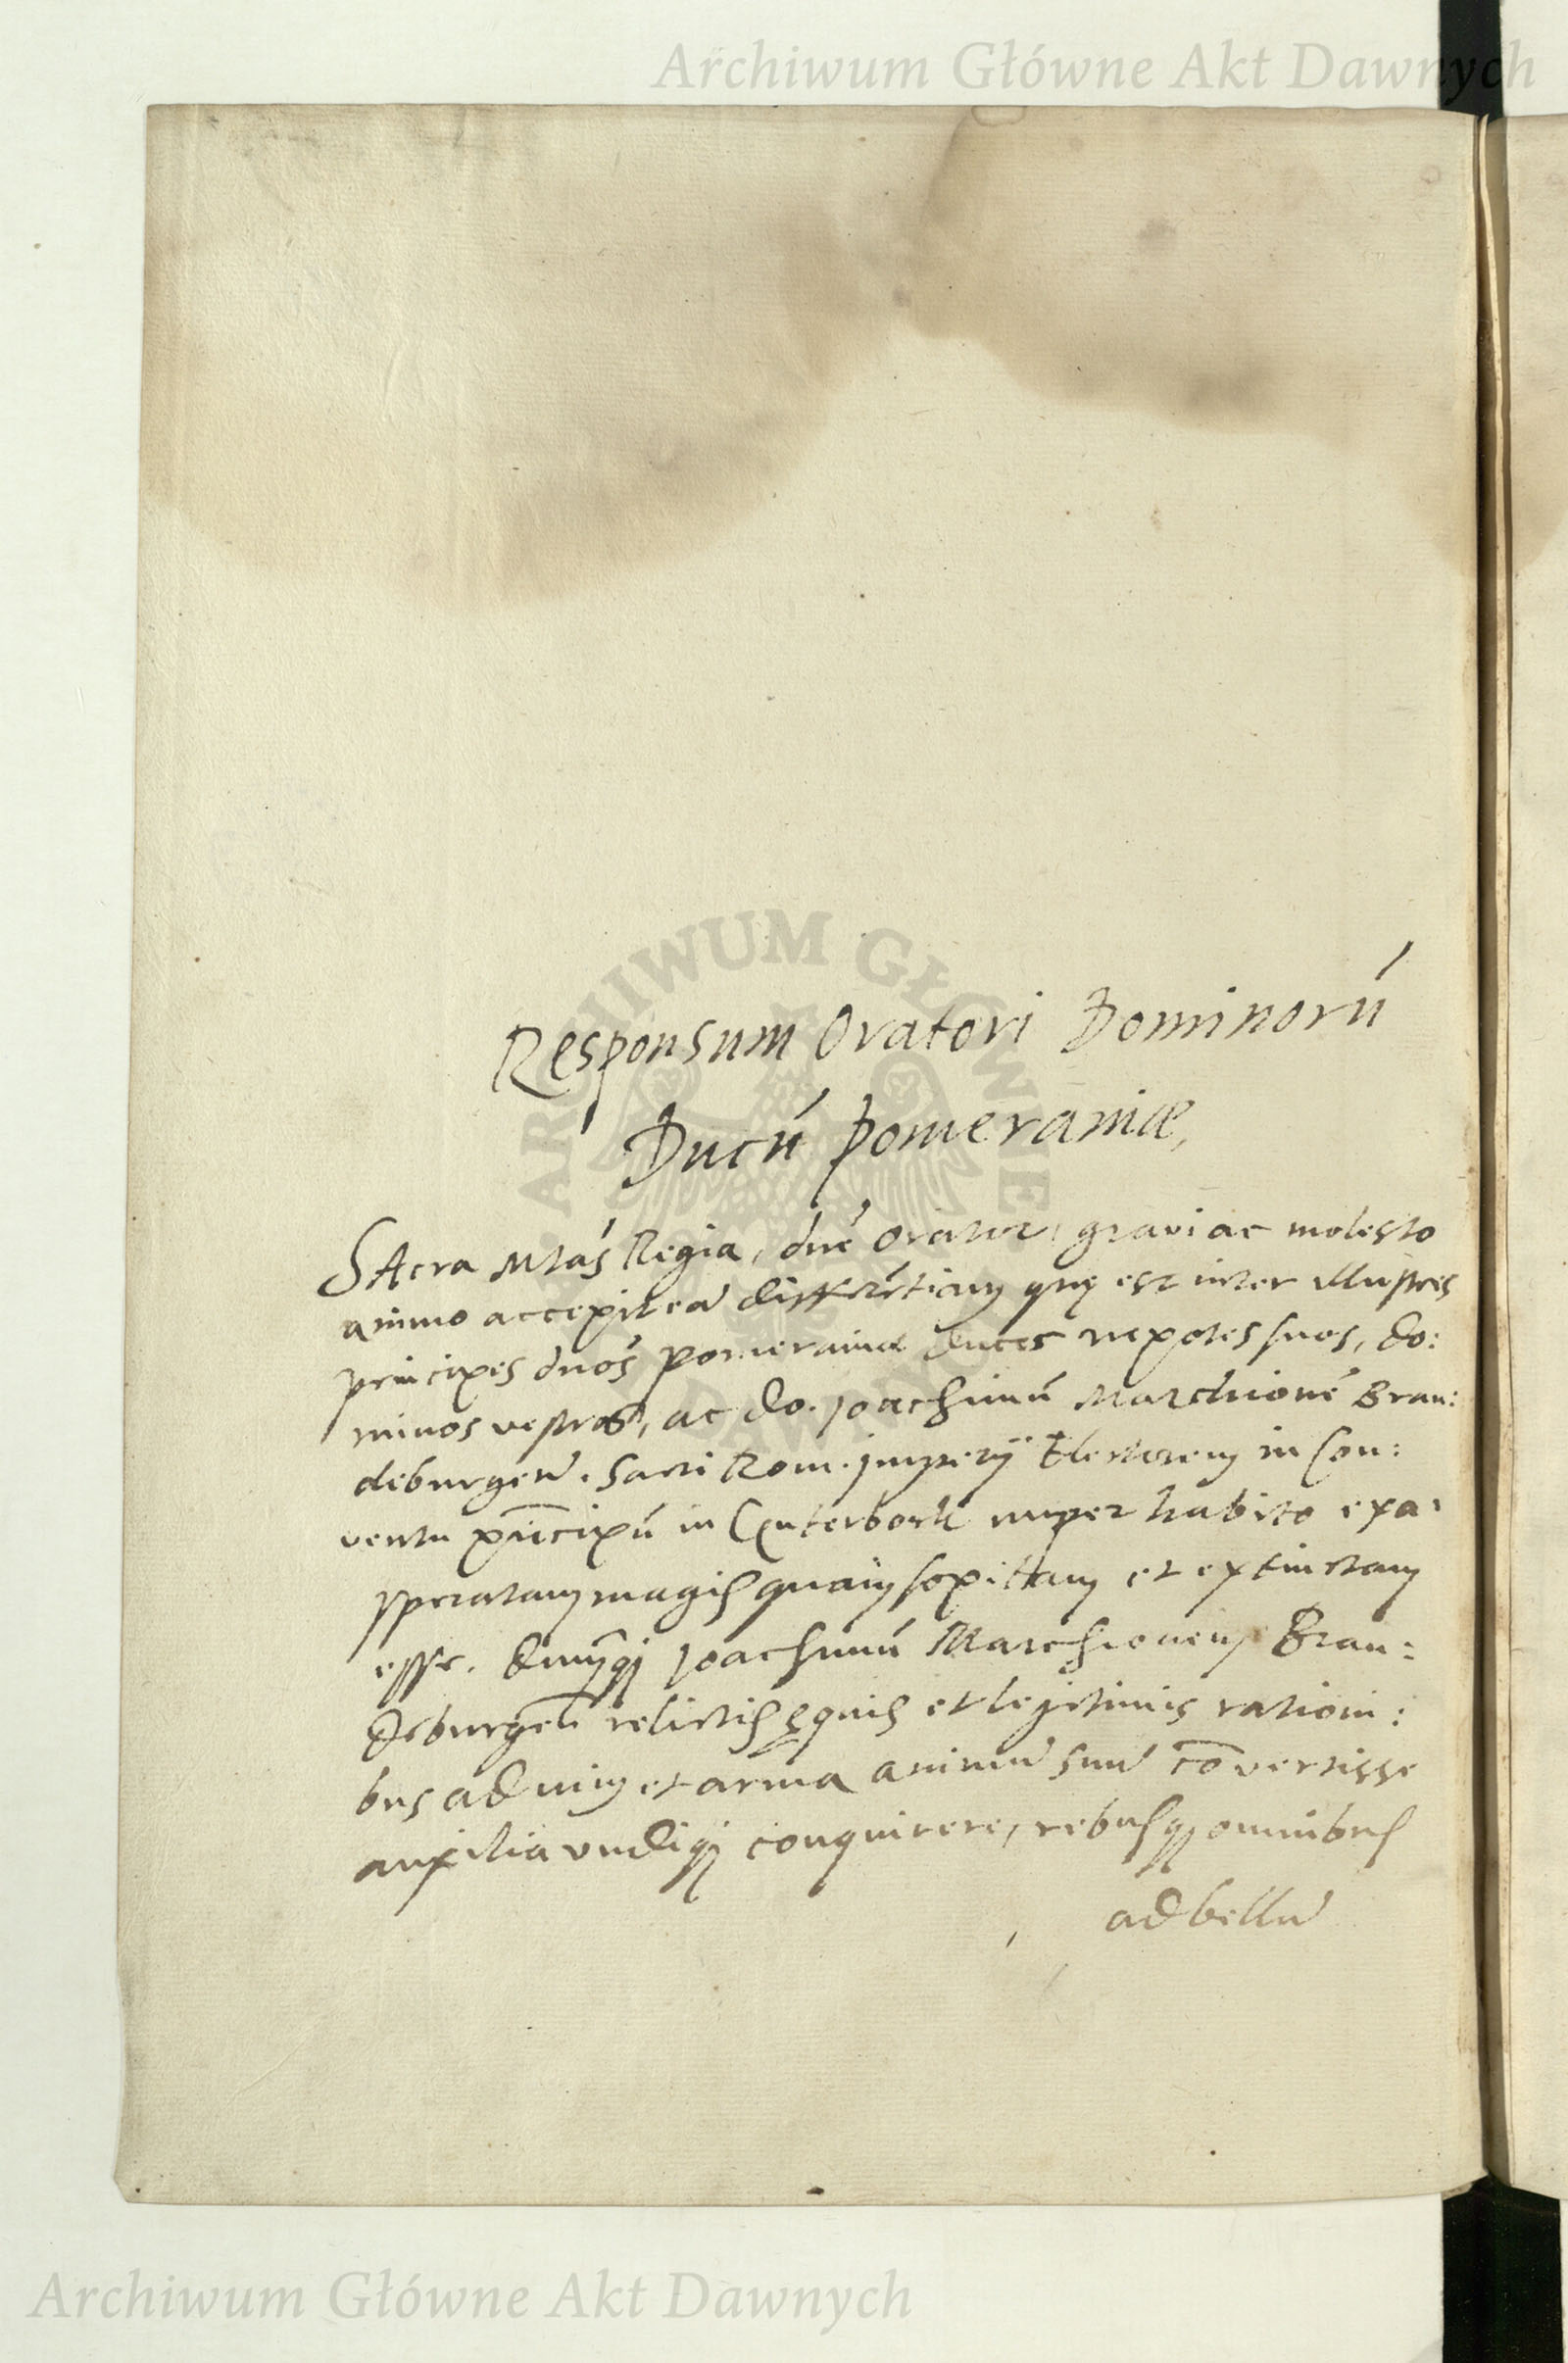 Archiwum Główne Akt Dawnych
Responsum Oratori Dominorú
Ducú Pomeraniæ,
SAcra Mtás Regia, dné Orator, graui ac molesto
animo accepit eã differẽtiam quę est inter illustres
principes dnós Pomeraniæ Duces nepotes suos, do:
minos vestros, ac do. Joachimú Marchioné Bran:
deburgeñ. Sacri Rom. Imperÿ Electorem in Con:
ventu prĩcipú in nuper habito exa:
speratam magis quam sopittam et extinctam
esse. Joachimú Marchionem Bran:
deburgeñ relictis ęquis et legitimis rationi:
bus ad vim et arma animũ suũ cõvertisse
auxilia vndiqȝ conquirere, rebusqȝ omnibus
ad bellũ
ARCHIWUM GŁÓWNE AKT DAWNYCH
Archiwum Główne Akt Dawnych